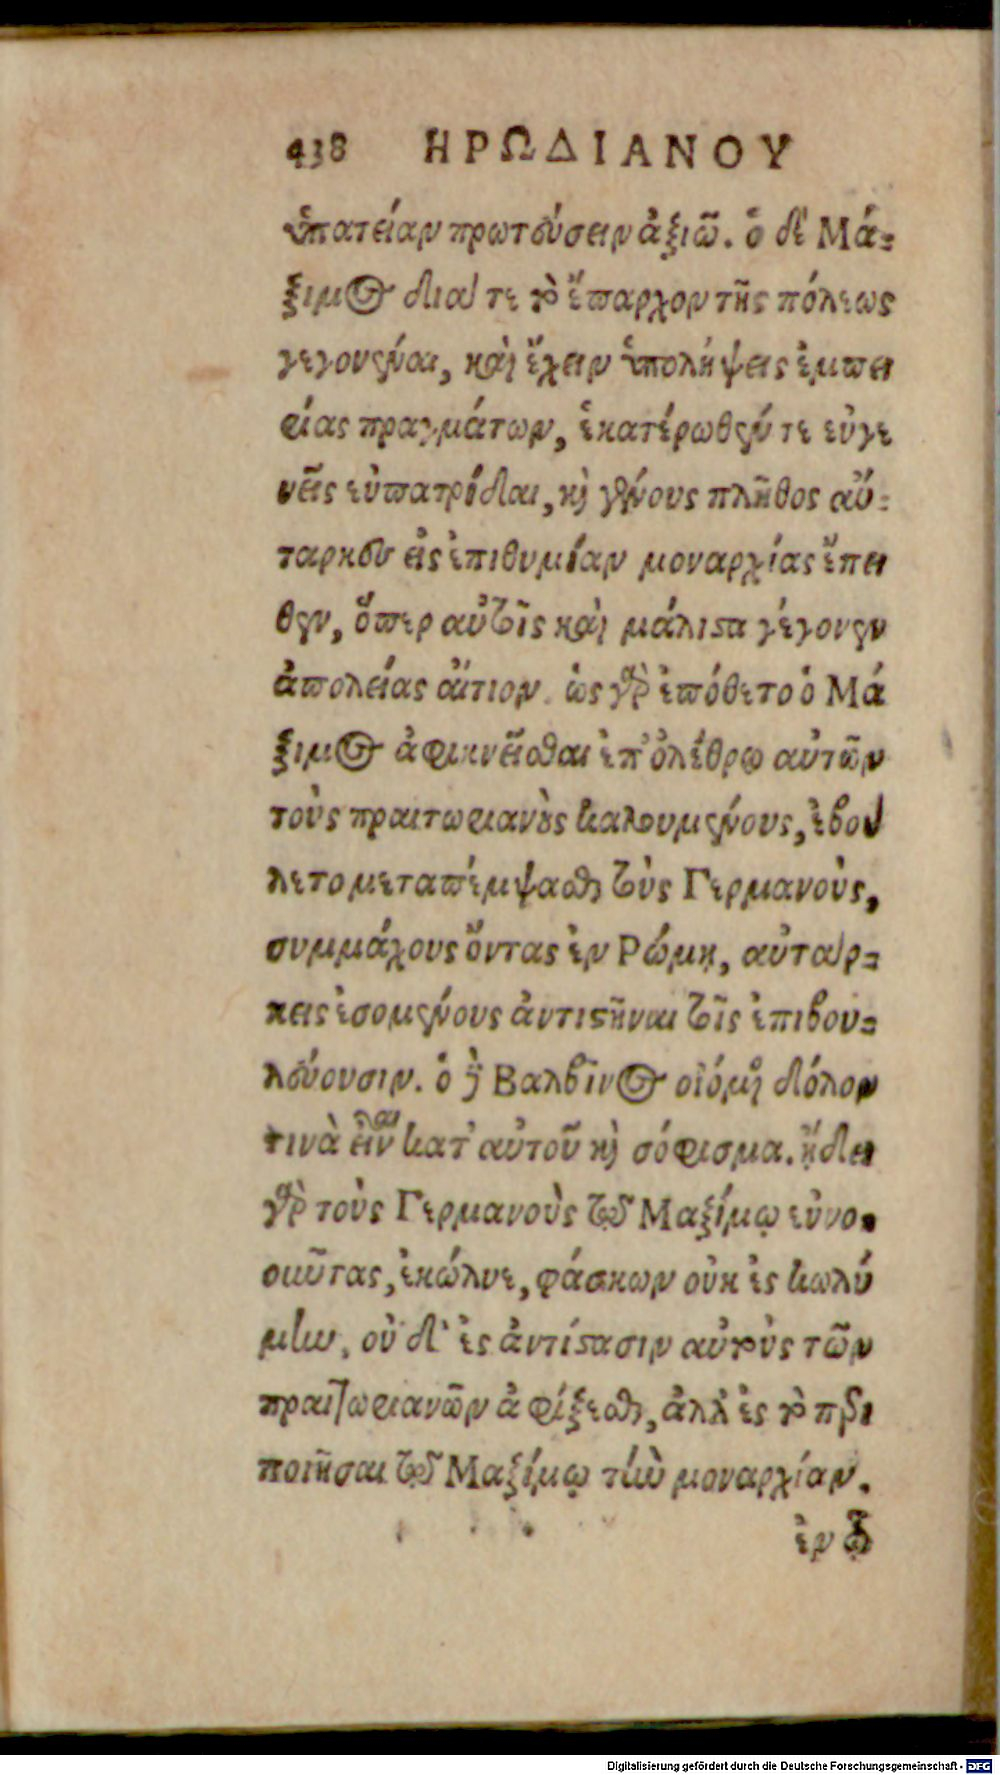 438 ΗΡΩΔΙΑΝΟΥ
ὑπατείαν πρωτεύσειν ἀξιῶ. ὁ δὲ Μά-
ξιμος διά τε τὸ ἔπαρχον τῆς πόλεως
γεγονέναι, καὶ ἔχειν ὑπολήψεις ἐμπει
ρίας πραγμάτων, ἑκατέρωθέν τε εὐγε
νεῖς εὐπατρίδαι, κỳ γένους πλῆθος αὔ-
ταρκες εἰς ἐπιθυμίαν μοναρχίας ἔπει
θεν, ὅπερ αὐτοῖς καὶ μάλιστα γέγονεν
ἀπολείας αἴτιον. ὡς γὰρ ἐπόθετο ὁ Μά
ξιμος ἀφικνεῖσθαι ἐπ' ὀλέθρῳ αὐτῶν
τοὺς πραιτωριανοὺς καλουμένους, ἐβού
λετο μεταπέμψασθαι τοὺς Γερμανοὺς,
συμμάχους ὄντας ἐν Ρώμῃ, αὐτάρ-
κεις ἐσομένους ἀντιστῆναι τοῖς ἐπιβου-
λεύουσιν. ὁ δὲ Βαλβῖνος οἰόμενος δόλον
τινὰ εἶναι κατ' αὐτοῦ καὶ σόφισμα. ᾔδει
γὰρ τοὺς Γερμανοὺς τῷ Μαξίμῳ εὐνο-
οιῦτας, ἐκώλυε, φάσκων οὐκ ἐς κωλύ
μην, οὐ δ' ἐς ἀντίστασιν αὐτοὺς τῶν
πραιτωριανῶν ἀφίξεσθαι, ἀλλ' ἐς τὸ περι
ποιῆσαι τῷ Μαξίμῳ τὴν μοναρχίαν.
ἐν ᾧ
Digitalisierung gefördert durch die Deutsche Forschungsgemeinschaft - DFG